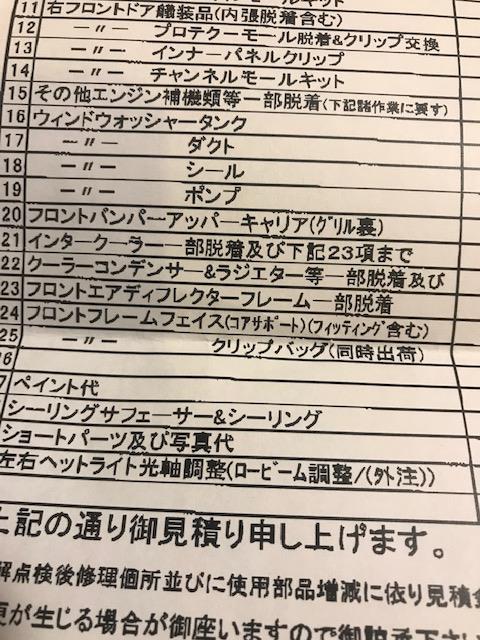 11 右フロントドア艤装品(内張脱着含む)
12 ー〃ー プロテクーモール脱着&クリップ交換
13 ー〃ー インナーパネルクリップ
14 ー〃ー チャンネルモールキット
15 その他エンジン補機類等一部脱着(下記諸作業に要す)
16 ウィンドウォッシャータンク
17 ー〃ー ダクト
18 ー〃ー シール
19 ー〃ー ポンプ
20 フロントバンパーアッパーキャリア(グリル裏)
21 インタークーラー一部脱着及び下記23項まで
22 クーラーコンデンサー&ラジエター等一部脱着及び
23 フロントエアディフレクターフレーム一部脱着
24 フロントフレームフェイス(コアサポート)(フィッティング含む)
25 ー〃ー クリップバッグ(同時出荷)
26
7 ペイント代
シーリングサフェーサー&シーリング
ショートパーツ及び写真代
左右ヘットライト光軸調整(ロービーム調整/(外注))
上記の通り御見積り申し上げます。
解点検後修理個所並びに使用部品増減に依り見積金
更が生じる場合が御座いますので御